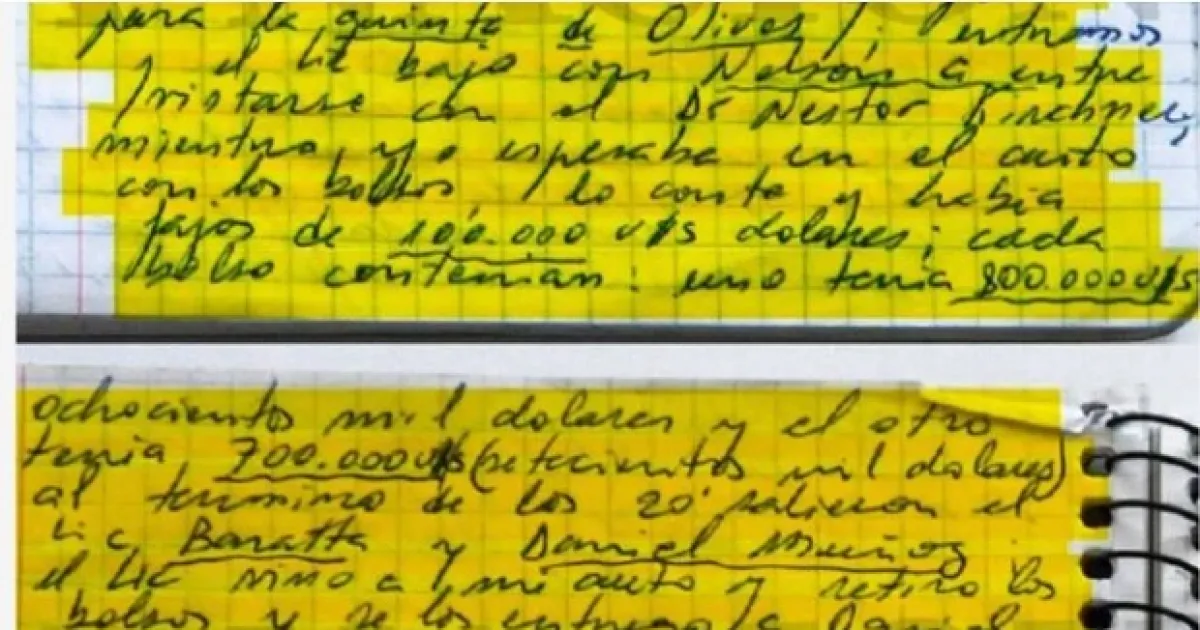 para la quinta de Olivos /; entramos
y el Lic bajo con Nelson a entre
/vistarse con el Dr Nestor Kirchner,
mientra, yo esperaba en el auto
con los bolsos, / lo conte y habia
fajos de 100.000 U$S dolares; cada
/bolso contenian: uno tenia 800.000 U$S
ochocientos mil dolares y el otro
tenia 700.000 U$S (setecientos mil dolares)
al termino de los 20' salieron el
Lic Baratta y Daniel Muñoz
el Lic vino a / mi auto y retiro los
bolsos y se los entrego /a Daniel